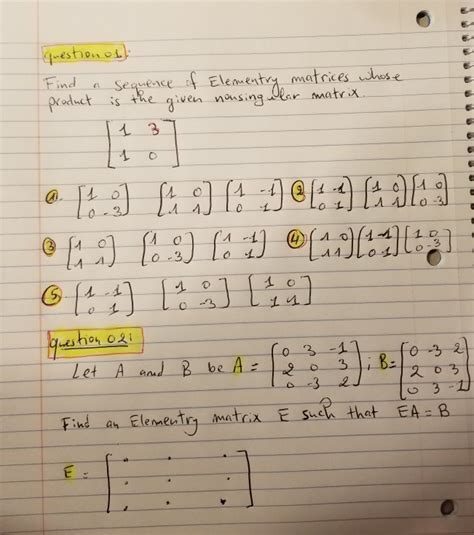 question 01:
Find a sequence of Elementry matrices whose
product is the given nonsingular matrix.
[1 3
1 0]
1. [1 0
0 -3] [1 0
1 1] [1 -1
0 1] 2 [1 -1
0 1] [1 0
1 1] [1 0
0 -3]
3 [1 0
1 1] [1 0
0 -3] [1 -1
0 1] 4 [1 0
1 1] [1 -1
0 1] [1 0
0 -3]
5. [1 -1
0 1] [1 0
0 -3] [1 0
1 1]
question 02:
Let A and B be A = [0 3 -1
2 0 3
0 -3 2] ; B = [0 -3 2
2 0 3
0 3 -1]
Find an Elementry matrix E such that EA = B
E = [. . .
. . .
. . .]